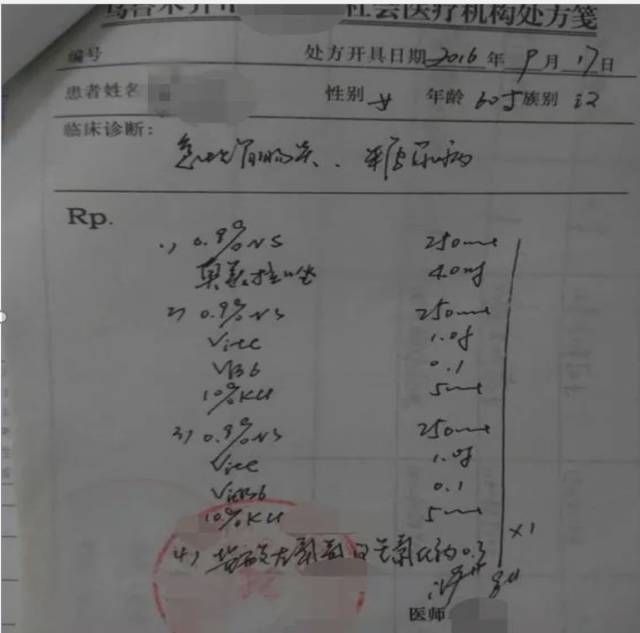 社会医疗机构处方笺
编号 处方开具日期 2016 年 9 月 17 日
患者姓名 性别 女 年龄 60岁 族别 汉
临床诊断:
急性胃肠炎、糖尿病
Rp.
1) 0.9%NS 250ml
奥美拉唑 40mg
2) 0.9%NS 250ml
Vitc 1.0g
VB6 0.1
10%KCl 5ml
3) 0.9%NS 250ml
Vitc 1.0g
VitB6 0.1
10%KCl 5ml
×1
4) 左氧氟 氯化钠 0.3
医师